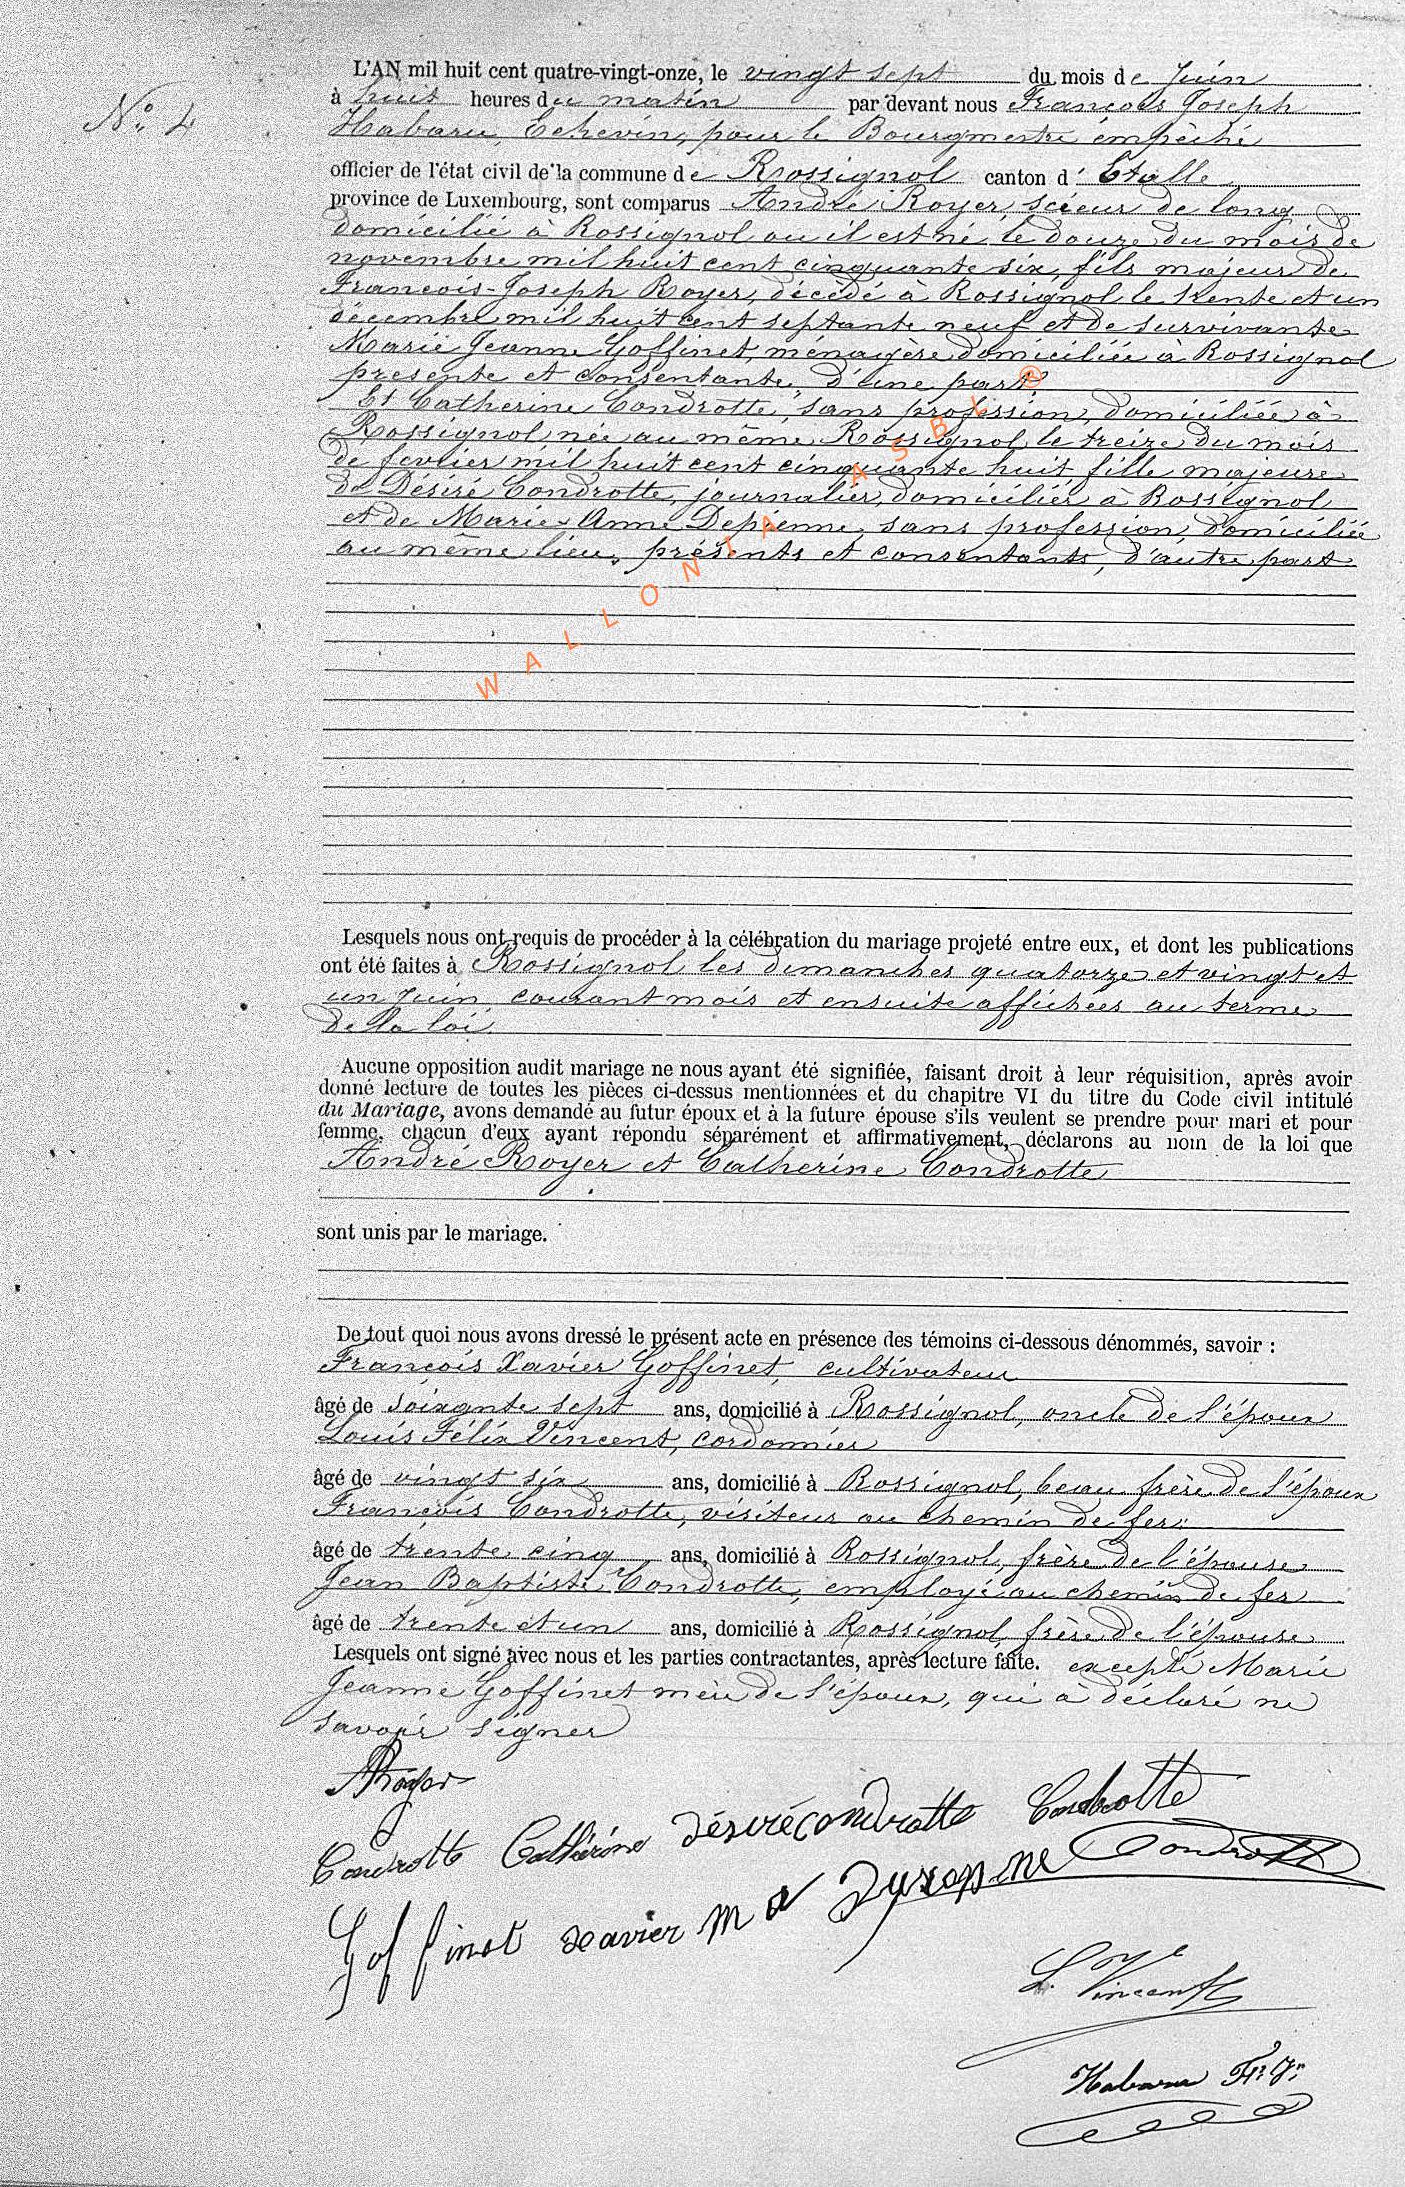 L'AN mil huit cent quatre-vingt-onze, le vingt sept du mois de Juin
N° 4
à huit heures du matin par devant nous François Joseph
Habaru, Echevin, pour le Bourgmestre empêché
officier de l'état civil de la commune de Rossignol canton d' Etalle
province de Luxembourg, sont comparus André Royer, scieur de long
domicilié à Rossignol ou il est né le douze du mois de
novembre mil huit cent cinquante six, fils majeur de
François-Joseph Royer, décédé à Rossignol le trente et un
décembre mil huit cent septante neuf et de survivante
Marie Jeanne Goffinet, ménagère domiciliée à Rossignol
présente et consentante, d'une part
Et Catherine Condrotte, sans profession, domiciliée à
Rossignol née au même Rossignol le treize du mois
de fevrier mil huit cent cinquante huit fille majeure
de Désiré Condrotte, journalier, domiciliée à Rossignol
et de Marie-Anne Depienne, sans profession, domiciliée
au même lieu, présents et consentants, d'autre part
WALLONIA ASBL ®
Lesquels nous ont requis de procéder à la célébration du mariage projeté entre eux, et dont les publications
ont été faites à Rossignol les dimanches quatorze et vingt et
un Juin courant mois et ensuite affichées au terme
de la loi.
Aucune opposition audit mariage ne nous ayant été signifiée, faisant droit à leur réquisition, après avoir
donné lecture de toutes les pièces ci-dessus mentionnées et du chapitre VI du titre du Code civil intitulé
du Mariage, avons demandé au futur époux et à la future épouse s'ils veulent se prendre pour mari et pour
femme, chacun d'eux ayant répondu séparément et affirmativement, déclarons au nom de la loi que
André Royer et Catherine Condrotte
sont unis par le mariage.
De tout quoi nous avons dressé le présent acte en présence des témoins ci-dessous dénommés, savoir :
François Xavier Goffinet, cultivateur
âgé de soixante sept ans, domicilié à Rossignol, oncle de l'époux
Louis Félix Vincent, cordonnier
âgé de vingt six ans, domicilié à Rossignol, beau frère de l'époux
François Condrotte, visiteur au chemin de fer
âgé de trente cinq ans, domicilié à Rossignol, frère de l'épouse
Jean Baptiste Condrotte, employé au chemin de fer
âgé de trente et un ans, domicilié à Rossignol, frère de l'épouse
Lesquels ont signé avec nous et les parties contractantes, après lecture faite. excepté Marie
Jeanne Goffinet mère de l'époux, qui à déclaré ne
savoir signer
ARoyer
Condrotte Catherine désirécondrotte Condrotte
Condrotte
Goffinet xavier
L. Vincent
Habaru Fr. J.